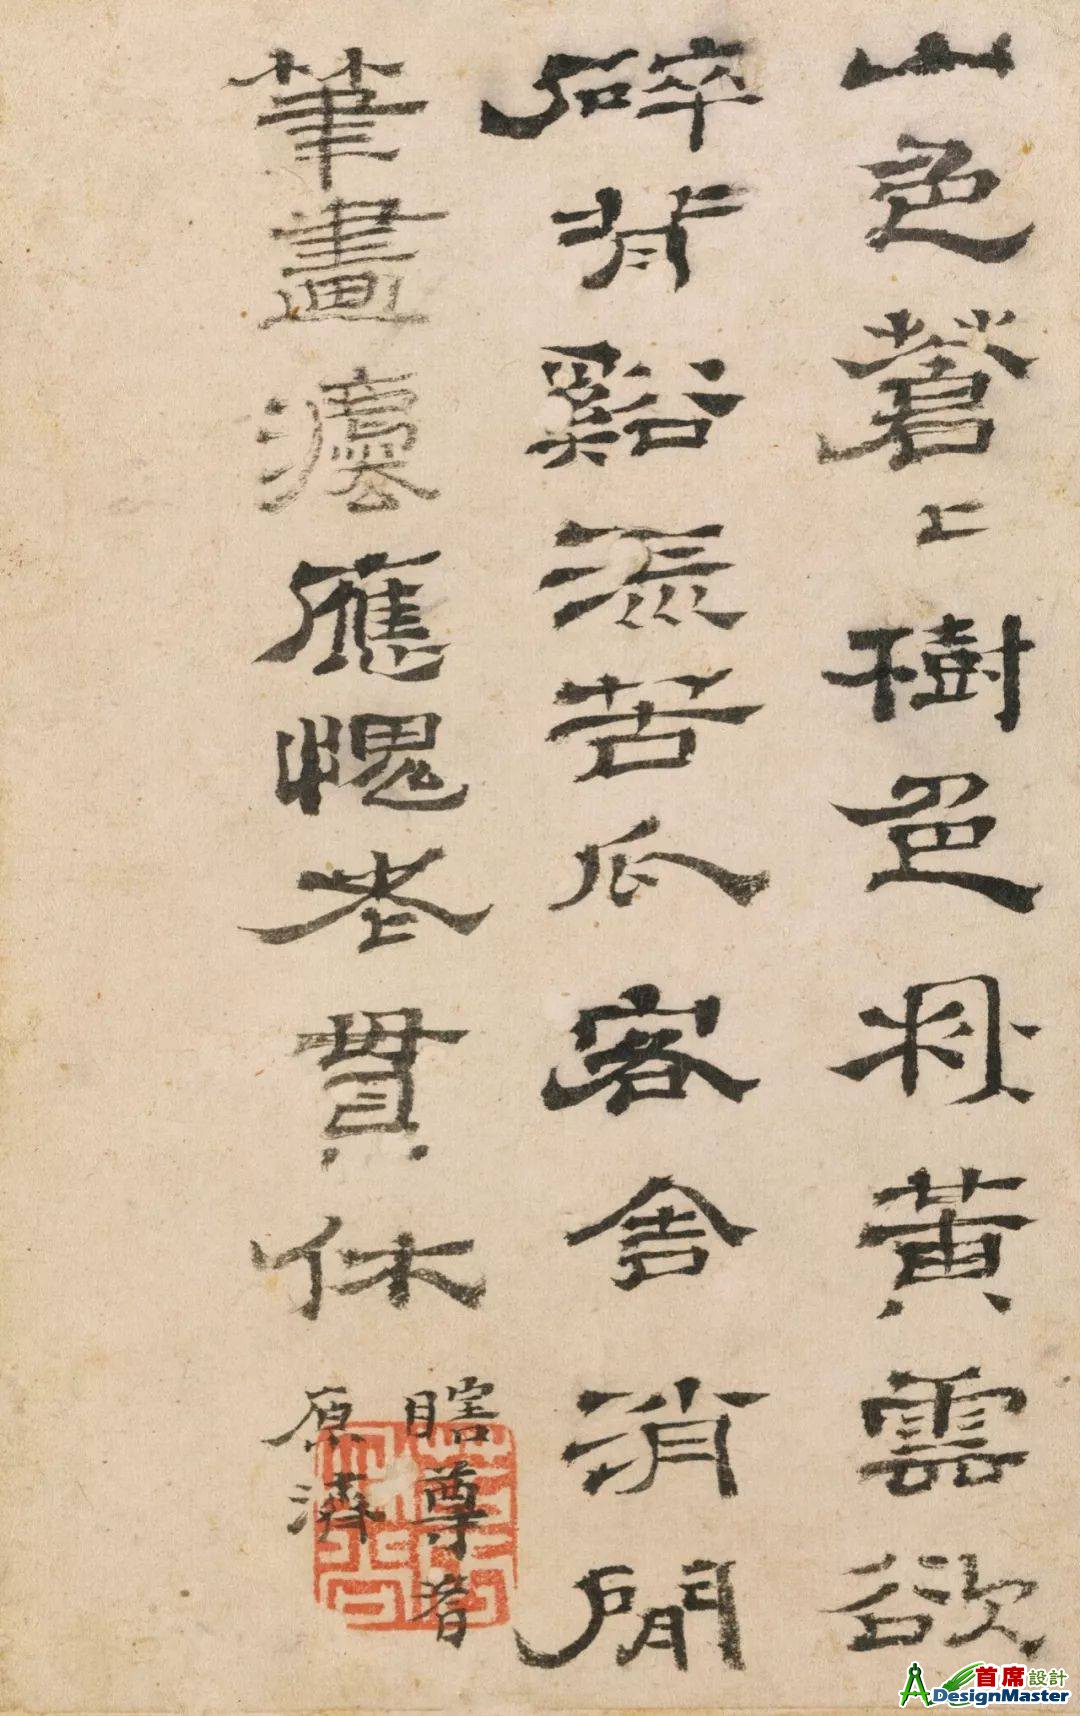 山色蒼〻樹色秋黃雲欲
碎背谿流苦瓜客舍消閒
筆畫灋應愧老貫休
瞎尊者
原濟
首席設計
ADesignMaster